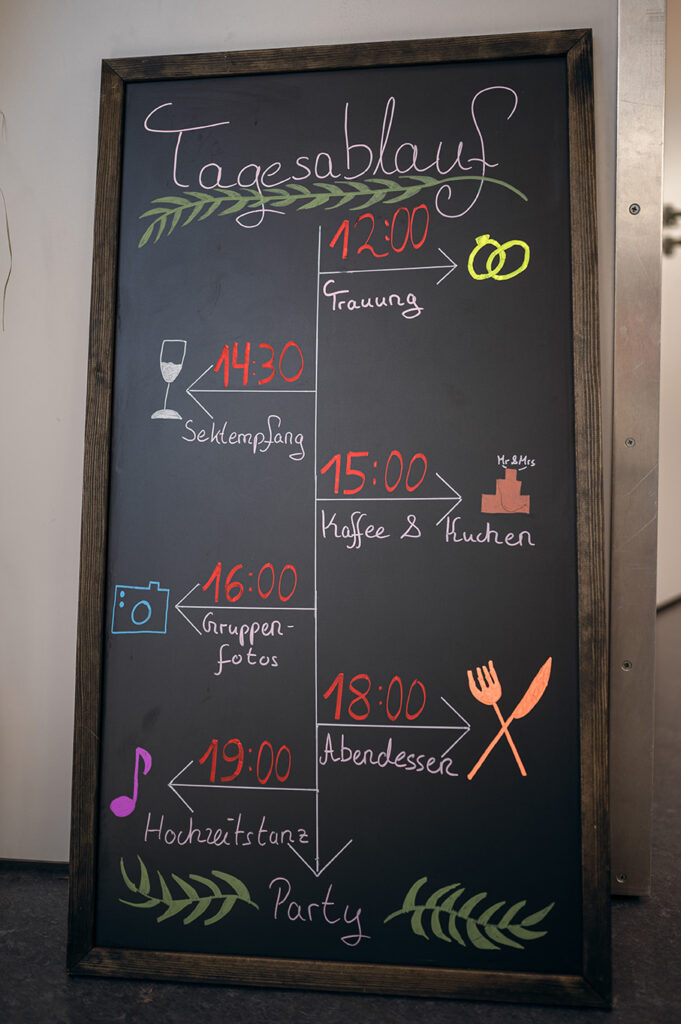 Tagesablauf
12:00
Trauung
14:30
Sektempfang
15:00
Mr & Mrs
Kaffee & Kuchen
16:00
Gruppen-
fotos
18:00
Abendessen
19:00
Hochzeitstanz
Party